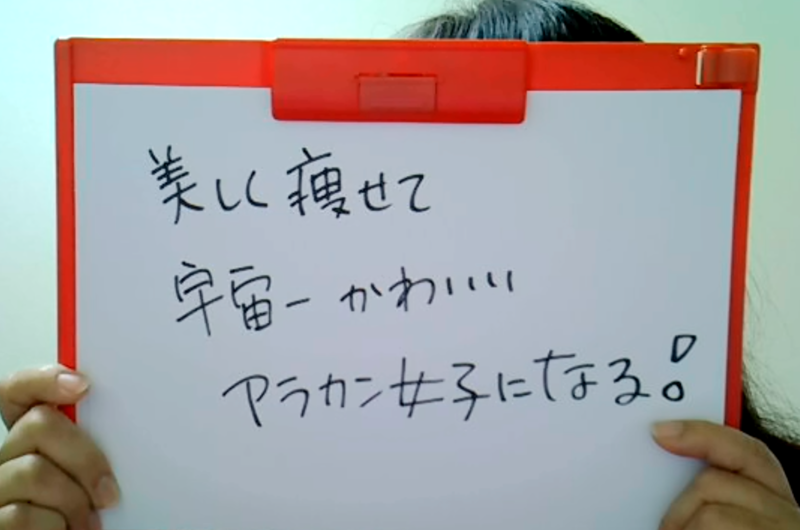 美しく痩せて
宇宙一かわいい
アラカン女子になる!